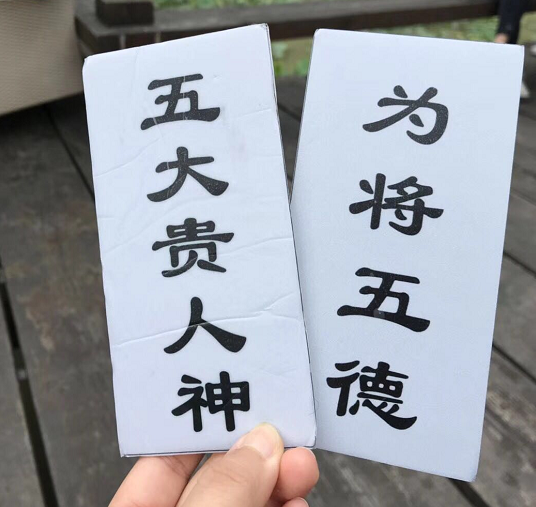 五大贵人神
为将五德